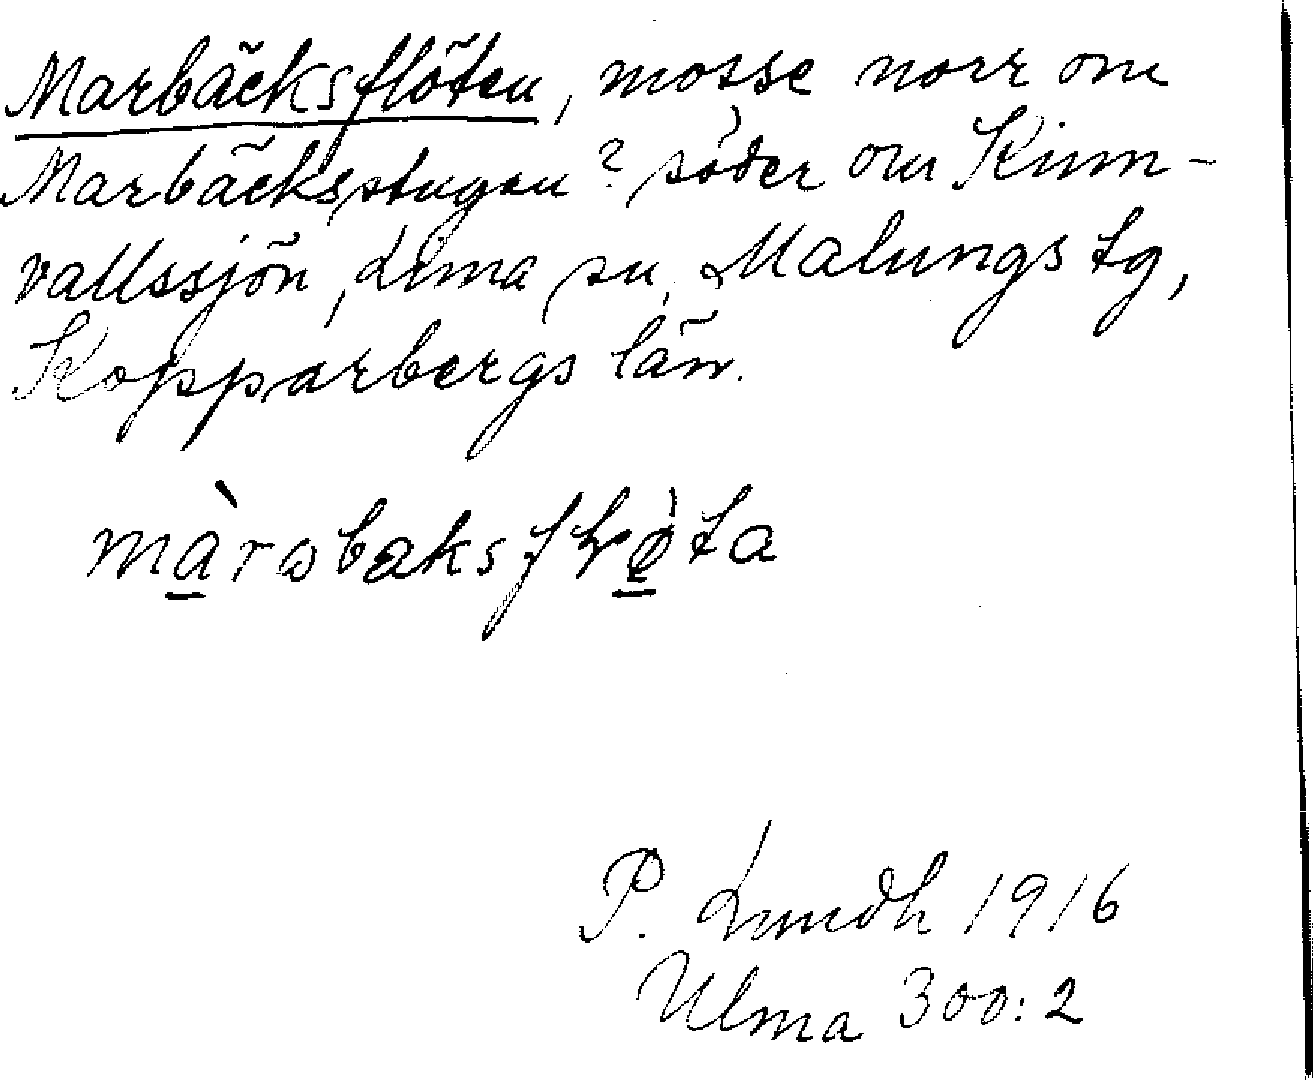 Marbäcksflöten, mosse norr om
Marbäcksstugan? söder om Kinn-
vallssjön, Lima sn, Malungs tg,
Kopparbergs län.
P. Lundh 1916
Ulma 300:2